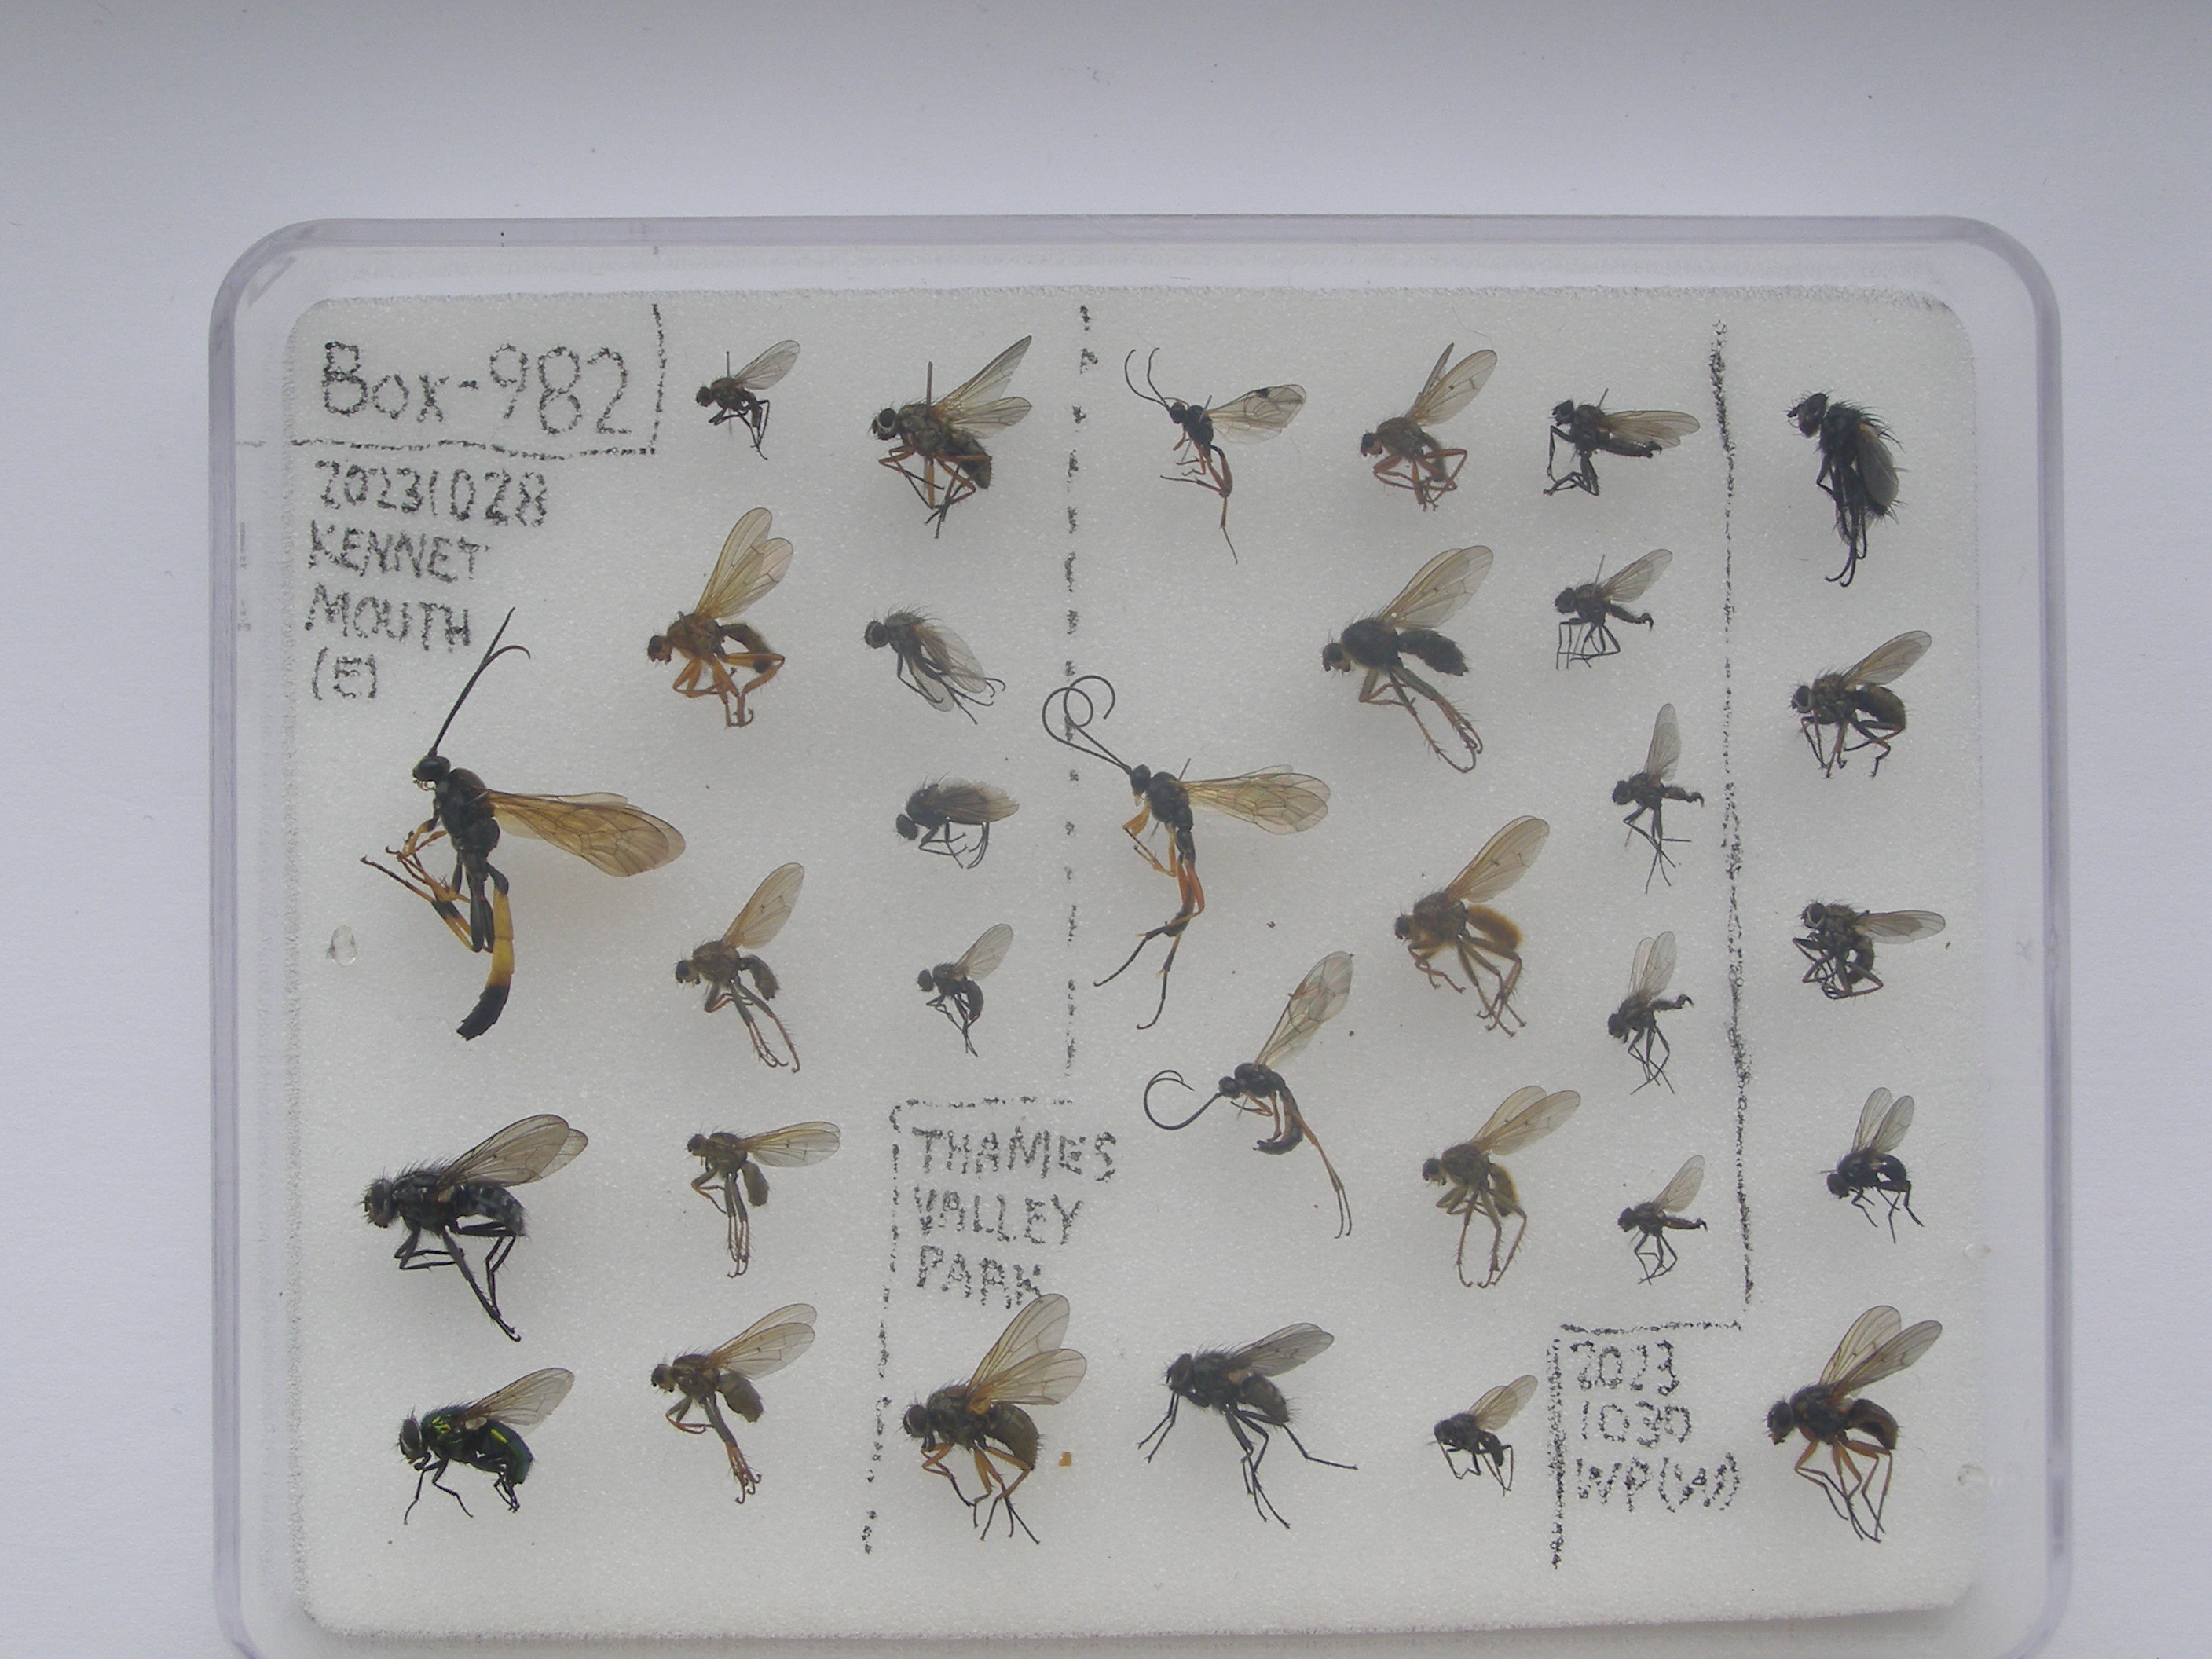 Box-982
20231028
KENNET
MOUTH
(E)
THAMES
VALLEY
PARK
2023
1030